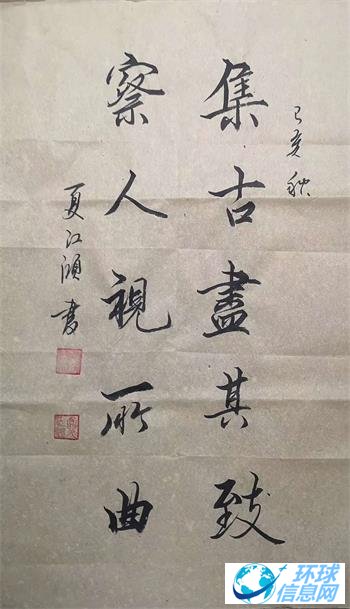 己亥秋
集古盡其致
察人視所曲
夏江頌書
环球
信息网